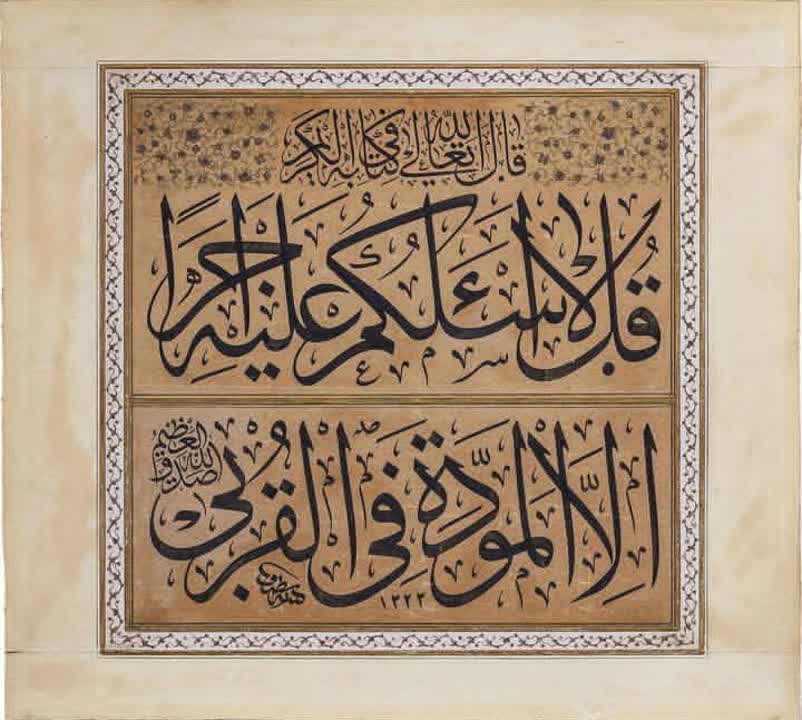 قال الله تعالى في كتابه الكريم
قُل لا اسئلكم عليه اجرًا
الا المودّة فى القربى
صدق الله العظيم
١٢٢٣